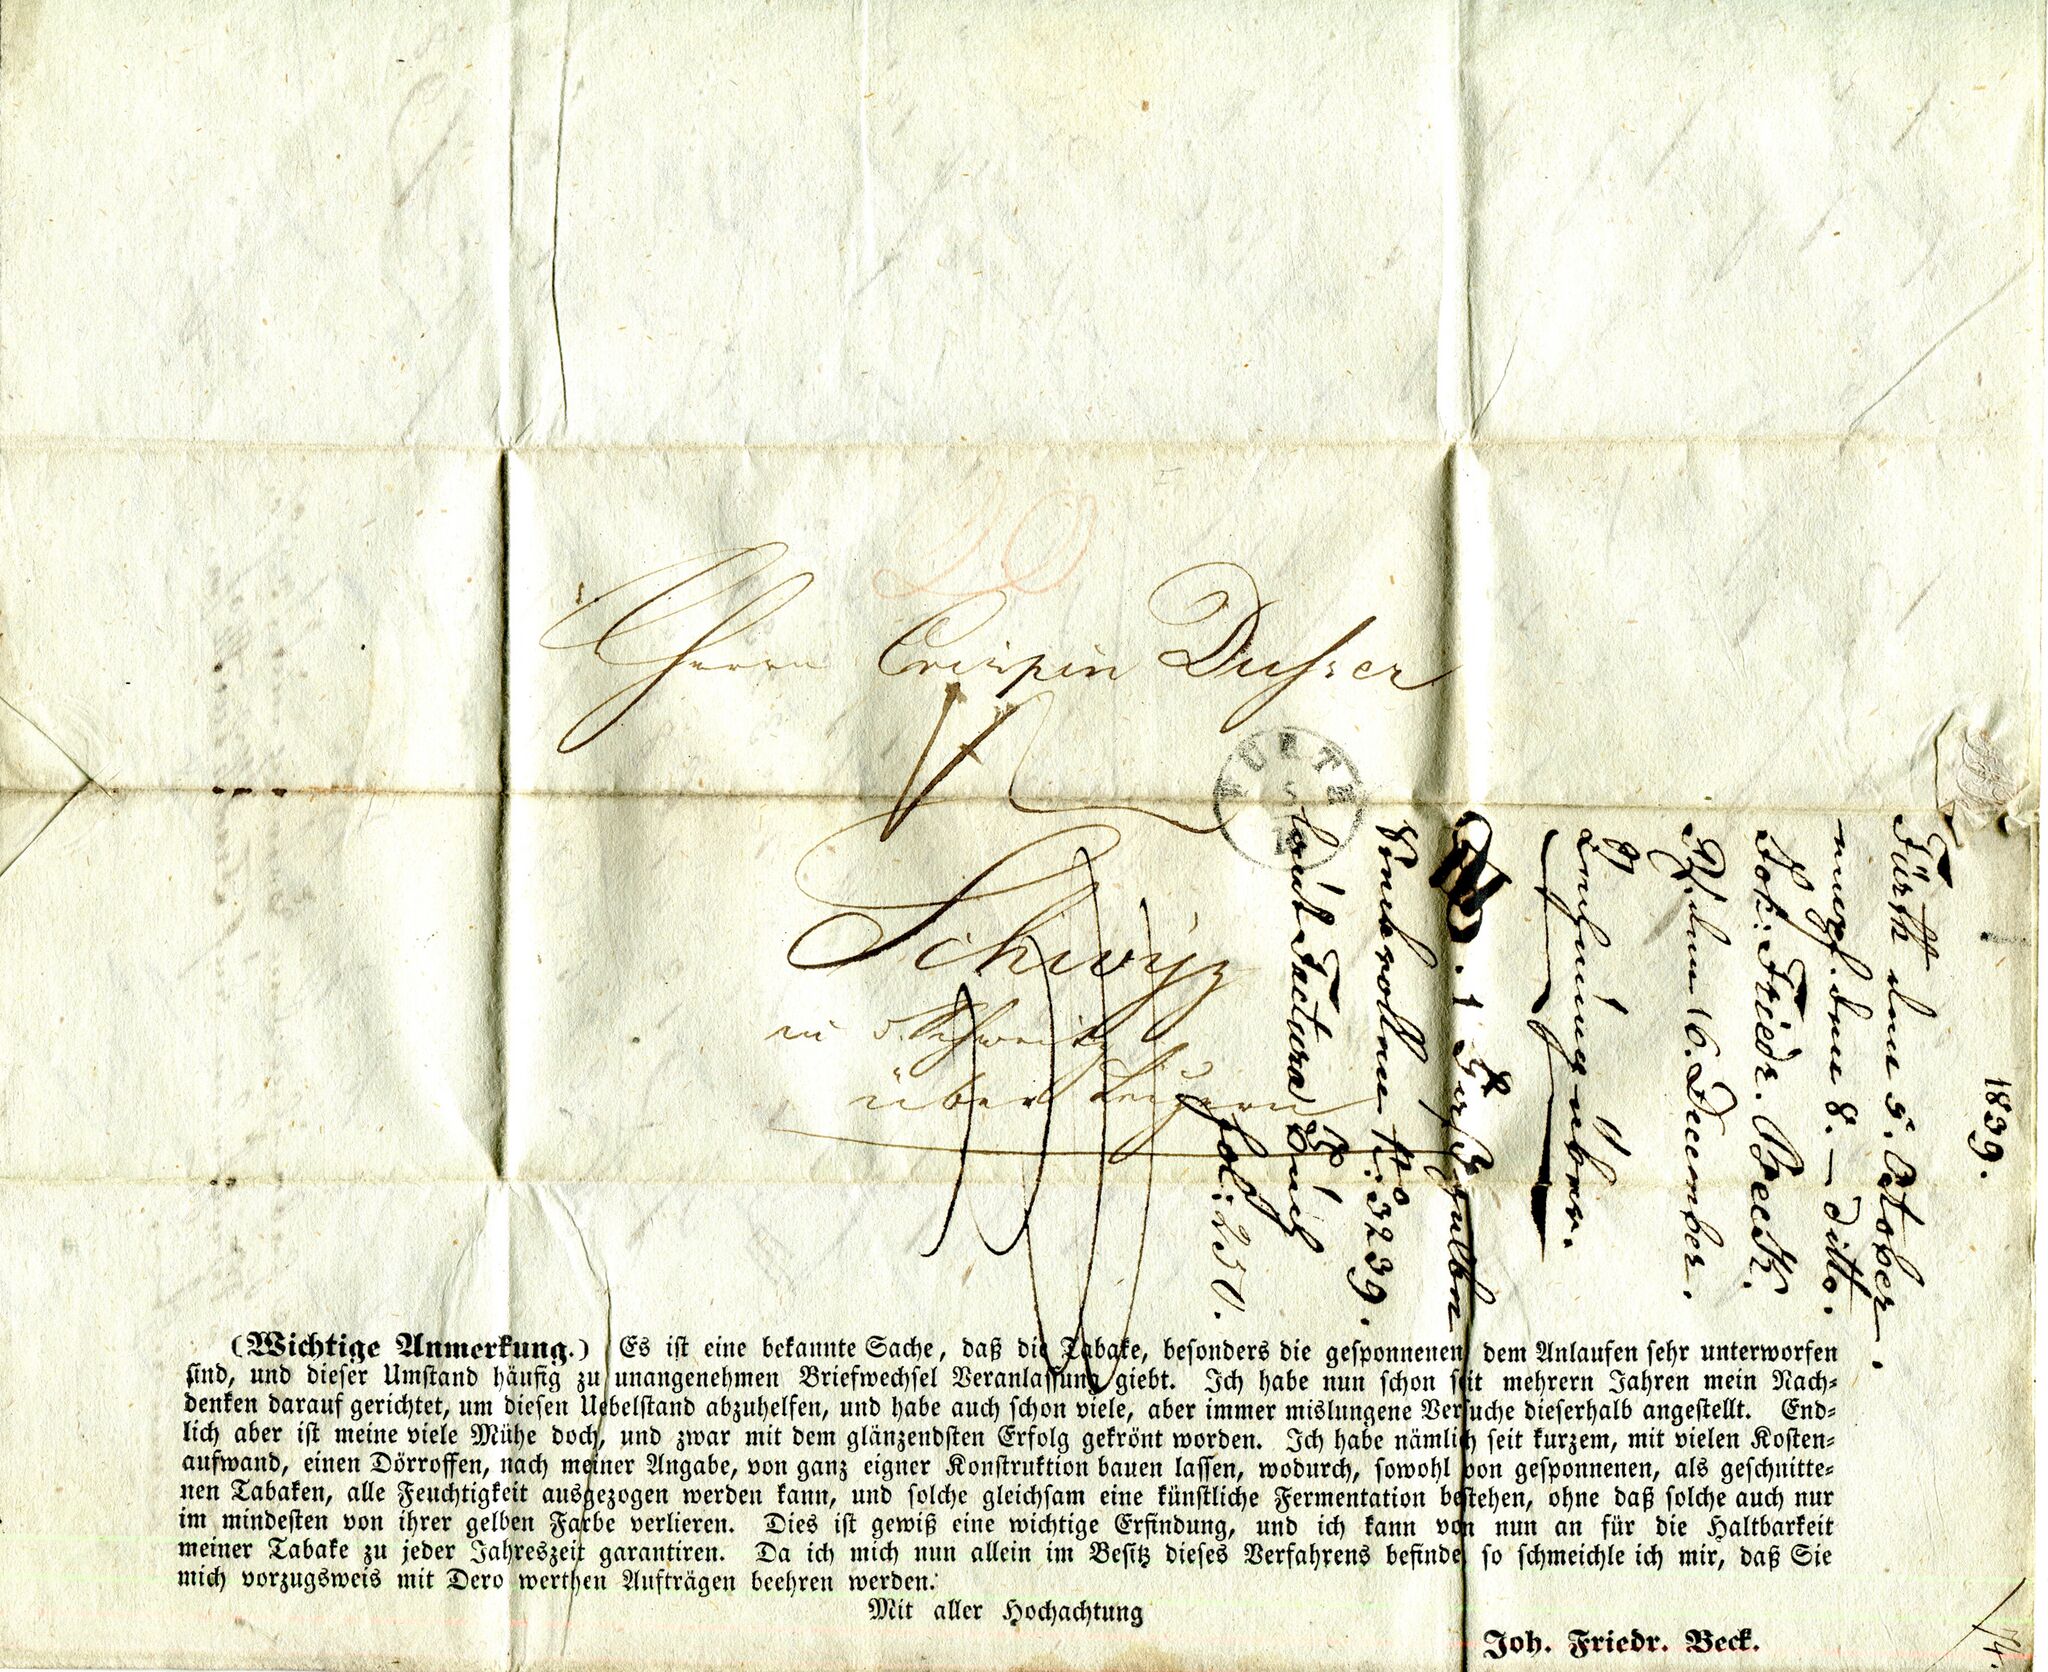 Herrn Crispin Dusser
Schwÿz
in d. Schweitz
über Luzern
FUERTH
1839.
Fürth den 5. October.
empf. den 8. – ditto.
Joh: Friedr. Beck.
16. December.
laut Factura Buch
fol: 250.
No: 3239.
(Wichtige Anmerkung.) Es ist eine bekannte Sache, daß die Tabake, besonders die gesponnenen dem Anlaufen sehr unterworfen
sind, und dieser Umstand häufig zu unangenehmen Briefwechsel Veranlassung giebt. Ich habe nun schon seit mehrern Jahren mein Nach-
denken darauf gerichtet, um diesen Uebelstand abzuhelfen, und habe auch schon viele, aber immer mislungene Versuche dieserhalb angestellt. End-
lich aber ist meine viele Mühe doch, und zwar mit dem glänzendsten Erfolg gekrönt worden. Ich habe nämlich seit kurzem, mit vielen Kosten-
aufwand, einen Dörroffen, nach meiner Angabe, von ganz eigner Konstruktion bauen lassen, wodurch, sowohl von gesponnenen, als geschnitte-
nen Tabaken, alle Feuchtigkeit ausgezogen werden kann, und solche gleichsam eine künstliche Fermentation bestehen, ohne daß solche auch nur
im mindesten von ihrer gelben Farbe verlieren. Dies ist gewiß eine wichtige Erfindung, und ich kann von nun an für die Haltbarkeit
meiner Tabake zu jeder Jahreszeit garantiren. Da ich mich nun allein im Besitz dieses Verfahrens befinde, so schmeichle ich mir, daß Sie
mich vorzugsweis mit Dero werthen Aufträgen beehren werden.
Mit aller Hochachtung
Joh. Friedr. Beck.